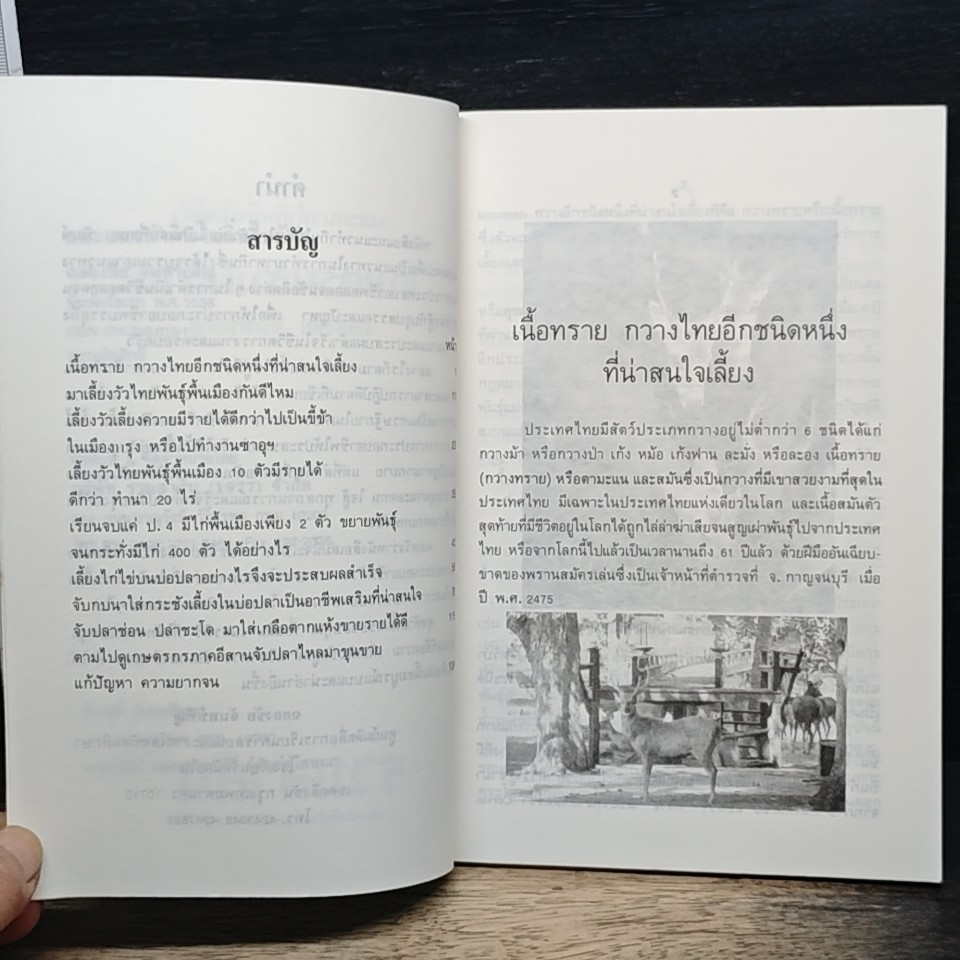 สารบัญ
หน้า
เนื้อทราย กวางไทยอีกชนิดหนึ่งที่น่าสนใจเลี้ยง
มาเลี้ยงวัวไทยพันธุ์พื้นเมืองกันดีไหม
เลี้ยงวัวเลี้ยงควายมีรายได้ดีกว่าไปเป็นขี้ข้า
ในเมืองกรุง หรือไปทำงานซาอุฯ
เลี้ยงวัวไทยพันธุ์พื้นเมือง 10 ตัวมีรายได้
ดีกว่า ทำนา 20 ไร่
เรียนจบแค่ ป. 4 มีไก่พื้นเมืองเพียง 2 ตัว ขยายพันธุ์
จนกระทั่งมีไก่ 400 ตัว ได้อย่างไร
เลี้ยงไก่ไข่บนบ่อปลาอย่างไรจึงจะประสบผลสำเร็จ
จับกบนาใส่กระชังเลี้ยงในบ่อปลาเป็นอาชีพเสริมที่น่าสนใจ
จับปลาช่อน ปลาชะโด มาใส่เกลือตากแห้งขายรายได้ดี
ตามไปดูเกษตรกรภาคอีสานจับปลาไหลมาขุนขาย
แก้ปัญหา ความยากจน
เนื้อทราย กวางไทยอีกชนิดหนึ่ง
ที่น่าสนใจเลี้ยง
ประเทศไทยมีสัตว์ประเภทกวางอยู่ไม่ต่ำกว่า 6 ชนิดได้แก่
กวางม้า หรือกวางป่า เก้ง หม้อ เก้งฟาน ละมั่ง หรือละอง เนื้อทราย
(กวางทราย) หรือตามะแน และสมันซึ่งเป็นกวางที่มีเขาสวยงามที่สุดใน
ประเทศไทย มีเฉพาะในประเทศไทยแห่งเดียวในโลก และเนื้อสมันตัว
สุดท้ายที่มีชีวิตอยู่ในโลกได้ถูกไล่ล่าฆ่าเสียจนสูญเผ่าพันธุ์ไปจากประเทศ
ไทย หรือจากโลกนี้ไปแล้วเป็นเวลานานถึง 61 ปีแล้ว ด้วยฝีมืออันเฉียบ-
ขาดของพรานสมัครเล่นซึ่งเป็นเจ้าหน้าที่ตำรวจที่ จ. กาญจนบุรี เมื่อ
ปี พ.ศ. 2475